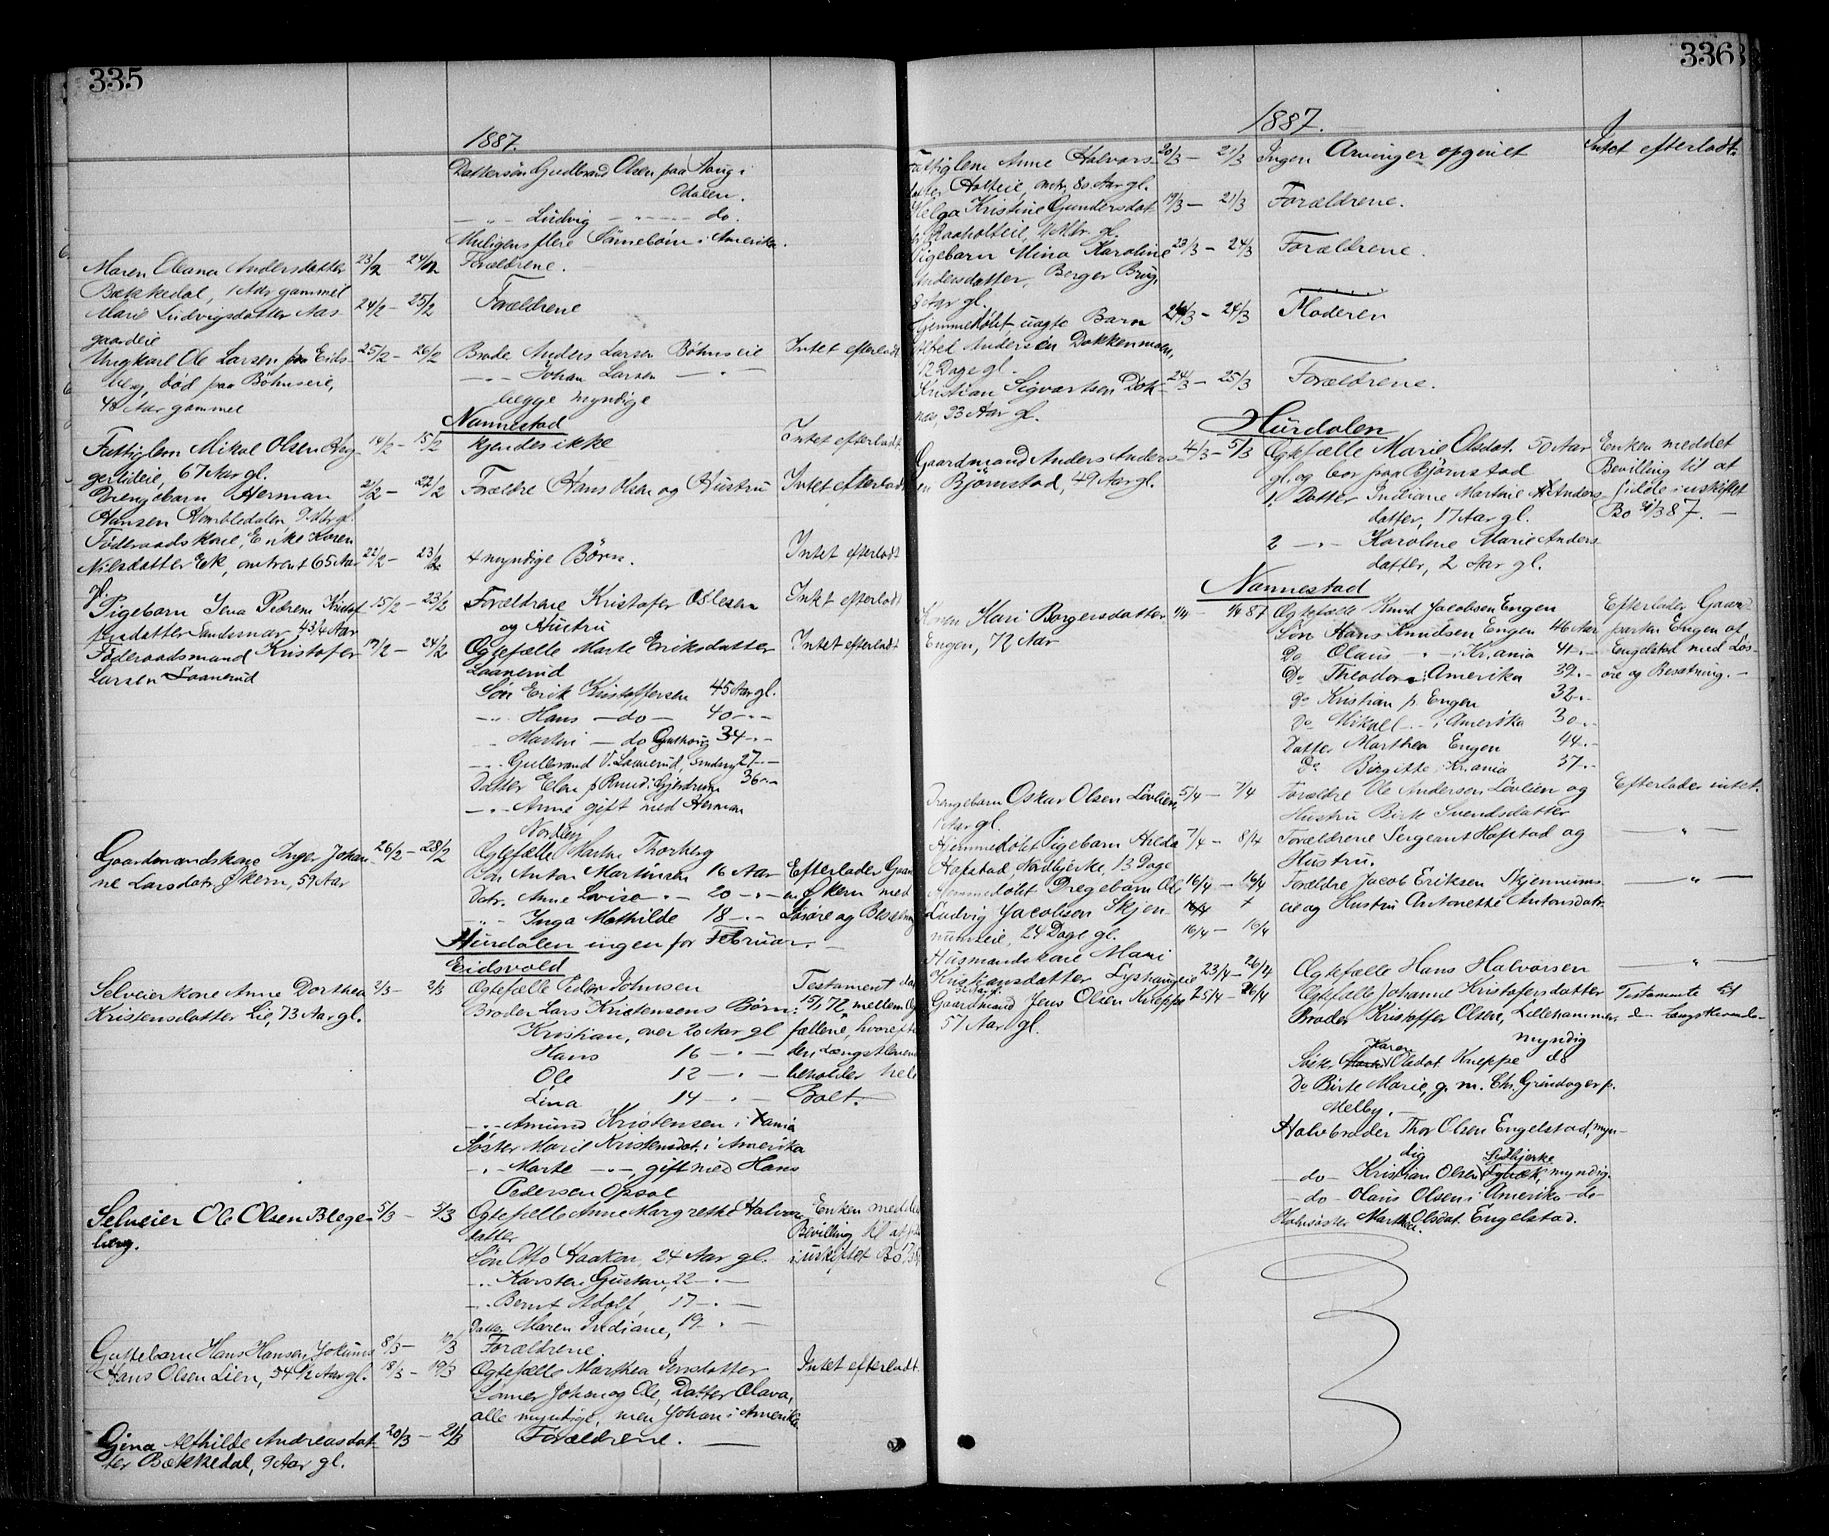 335
1887.
Dattersøn Gudbrand Olsen paa Haug i
Odalen.
— " — Ludvig — " — do.
Muligens flere Sønnebørn i Amerika.
Maren Oleana Andersdatter 23/2 — 24/2 Forældrene.
Bækkedal, 1 Aar gammel
Marie Ludvigsdatter Aas- 24/2 — 25/2 Forældrene
gaardeie
Ungkarl Ole Larsen fra Eids- 25/2 — 26/2 Brode Anders Larsen Bøhnseie Intet efterladt
død paa Bøhnseie, — " — Johan Larsen — " —
48 Aar gammel begge myndige
Nannestad
Fattiglem Mikal Olsen 14/2 — 15/2 kjendes ikke Intet efterladt
67 Aar gl.
Drengebarn Herman 21/2 — 22/2 Forældre Hans Olsen og Hustru Intet efterladt
Hansen Hombledalen,
Føderaadskone, Enke Karen
Nilsdatter Eek, omtrent 65 Aar 22/2 — 23/2 4 myndige Børn. Intet efterladt
Pigebarn Jena Petrene Kristof- 15/2 — 23/2 Forældrene Kristofer Intet efterladt
fersdatter 4 3/4 Aar og Hustru
Føderaadsmand Kristofer 17/2 — 24/2 Ogtefælle Marte Eriksdatter Intet efterladt
Larsen Laanerud Laanerud
Søn Erik Kristoffersen 45 Aar gl.
— " — Hans — do — 40 — " —
— " — Martin — do 34 — " —
— " — Gulbrand 27 — " —
Datter Elen i Gjerdrum 36 — " —
— " — Anne gift med Herman
Nordby
Gaardmandskone Inger Johan- 26/2 — 28/2 Ogtefælle Martin Thorberg
ne Larsdatr. Økern, 59 Aar Søn Anton Martinsen 16 Aar Efterlader Gaar-
Datr. Anne Lovise — " — 20 — " — en Økern med
— " — Inga Mathilde 18 — " — Løsøre og Besætning
Hurdalen ingen for Februar. —
Eidsvold
Selveierkone Anne Dorthea 2/3 — 2/3 Ogtefælle Peder Johnsen Testament
Kristensdatter Lie, 73 Aar gl. Broder Lars Kristensens Børn: 72 mellem
Kristian, over 20 Aar gl. fællene, hvorefter
Hans 16 — " — den Længstlevende
Ole 12 — " — beholder hele
Lina 14 — " — Boet.
— " — Amund Kristensen i Xania
Søster Marit Kristensdat. i Amerika
— " — Marte — " — gift med Hans
Pedersen Opsal
Selveier Ole Olsen Blege- 5/3 — 5/3 Ogtefælle Anne Margrethe Halvors- Enken meddelt
berg. datter Bevilling til at
Søn Otto Haakon, 24 Aar gl. i uskiftet Bo
— " — Karsten Gustav, 22 — " —
— " — Bernt Adolf, 17 — " —
Datter Maren Indiane, 19 — " —
Guttebarn Hans Hansen, 8/3 — Forældrene.
Hans Olsen Lien, 54 1/2 Aar gl. 18/3 — 19/3 Ogtefælle Marthea Jensdatter Intet efterladt.
Sønner Johan og Ole, Datter Olava,
alle myndige, men Johan i Amerika
Gina Mathilde Andreasdat- 20/3 — 21/3 Forældrene. —
ter Bækkedal, 9 Aar gl.
336
1887.
Fattiglem Anne Halvors- 20/3 — 21/3 Ingen Arvinger opgivet Intet efterladt.
datter Holteie, omtr. 80 Aar gl.
Helga Kristine Gundersdat- 19/3 — 21/3 Forældrene.
ter Raaholteie,
Pigebarn Mina Karoline 23/3 — 24/3 Forældrene.
Andersdatter, Berger Brug,
8 Aar gl.
Hjemmedøbt uægte Barn 24/3 — 24/3 Moderen
Andersen Dokkenmoen,
12 Dage gl.
Kristian Sigvartsen Dok- 24/3 — 25/3 Forældrene.
nes, 23 Aar gl.
Hurdalen
Gaardmand Anders Anders- 4/3 — 5/3 Ogtefælle Marie Olsdat. 50 Aar Enken meddet
en Bjørnstad, 49 Aar gl. gl. og bor paa Bjørnstad Bevilling til at
1. Datter Indiane Martine Anders- sidde i uskiftet
datter, 17 Aar gl. Bo 21/3 87. —
2 — " — Karoline Marie Anders-
datter, 2 Aar gl.
Nannestad
Konen Kari Borgersdatter Ogtefælle Knud Jacobsen Engen Efterlader Gaard-
Engen, 72 Aar Søn Hans Knudsen Engen 46 Aar parten Engen af
Do Olaus — " — i Kr.ania 41 — Engelstad med Løs-
Do Theodor — i Amerika 39 — øre og Besætning. —
Do Kristian p. Engen 32 —
Do Mikael — " — i Amerika 30 —
Datter Marthea Engen 44 —
Do Birgitte i Kr.ania 37 —
Drengebarn Oskar Olsen Løvlien 5/4 — 7/4 Forældre Ole Andersen Løvlien og Efterlader intet.
1 Aar gl. Hustru Birte Svendsdatter
Hjemmedøbt Pigebarn Hilda 7/4 — 8/4 Forældrene Sergeant Hofstad og — " —
Hofstad Nordbjerke, 13 Dage Hustru.
Hjemmedøbt Dregebarn Ole 16/4 — 16/4 Forældre Jacob Eriksen Skjennums- — " —
Ludvig Jacobsen Skjen- eie og Hustru Antonette Antonsdatr.
numseie, 24 Dage gl. 16/4 — 16/4
Husmandskone Mari
Kristiansdatter Lyshaugeie 23/4 — 26/4 Ogtefælle Hans Halvorsen — " —
Gaardmand Jens Olsen Kneppe 25/4 — 26/4 Ogtefælle Johanne Kristofersdatter Testamente til
51 Aar gl. Broder Kristoffer Olsen, Lillehammer, d. Længstlevende
myndig
Karen
Søster Olsdat Kneppe do
Do Birte Marie, g. m. Chr. Grindager p.
Melby.
Halvbroder Thor Olsen Engelstad, myn-
dig Sydbjerke
— do — Kristian Olsen myndig.
— do — Olaus Olsen i Amerika — do —
Halvsøster Marthe Olsdat. Engelstad.